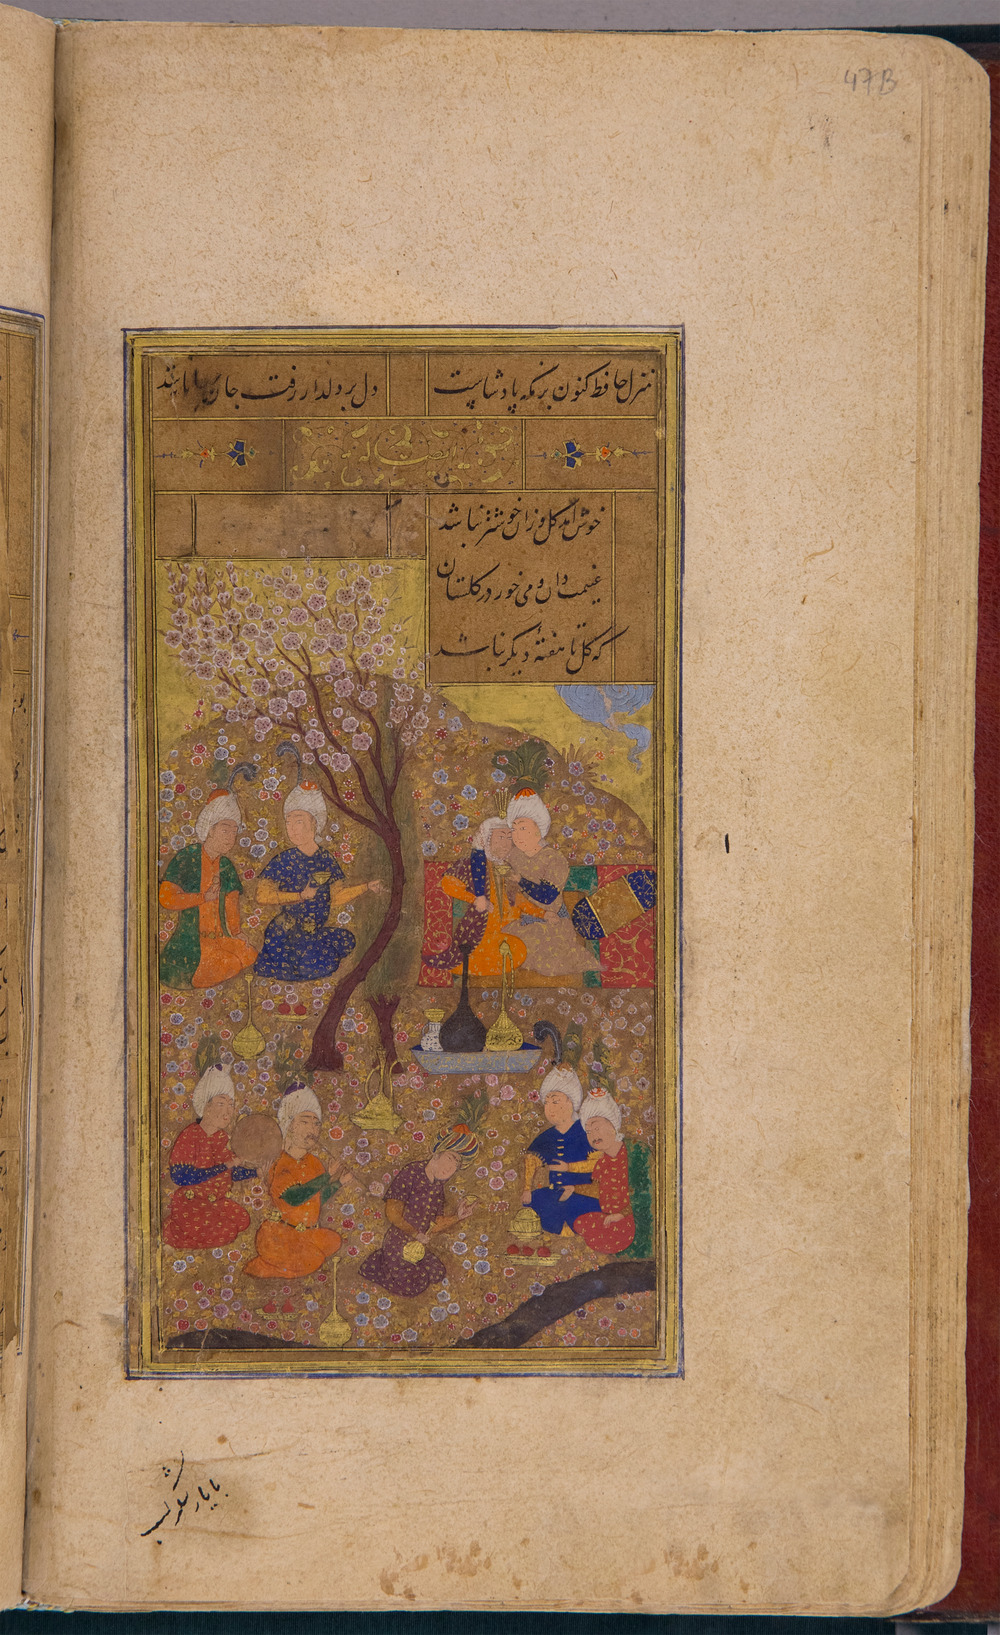 47B
منزل حافظ کنون بزمگه پادشاست دل بر دلدار رفت جان بر جانانه شد
خوش آمد گل وزان خوشتر نباشد
غنیمت دان و می خور در گلستان
که گل تا هفتهٔ دیگر نباشد
با یار شکر لب